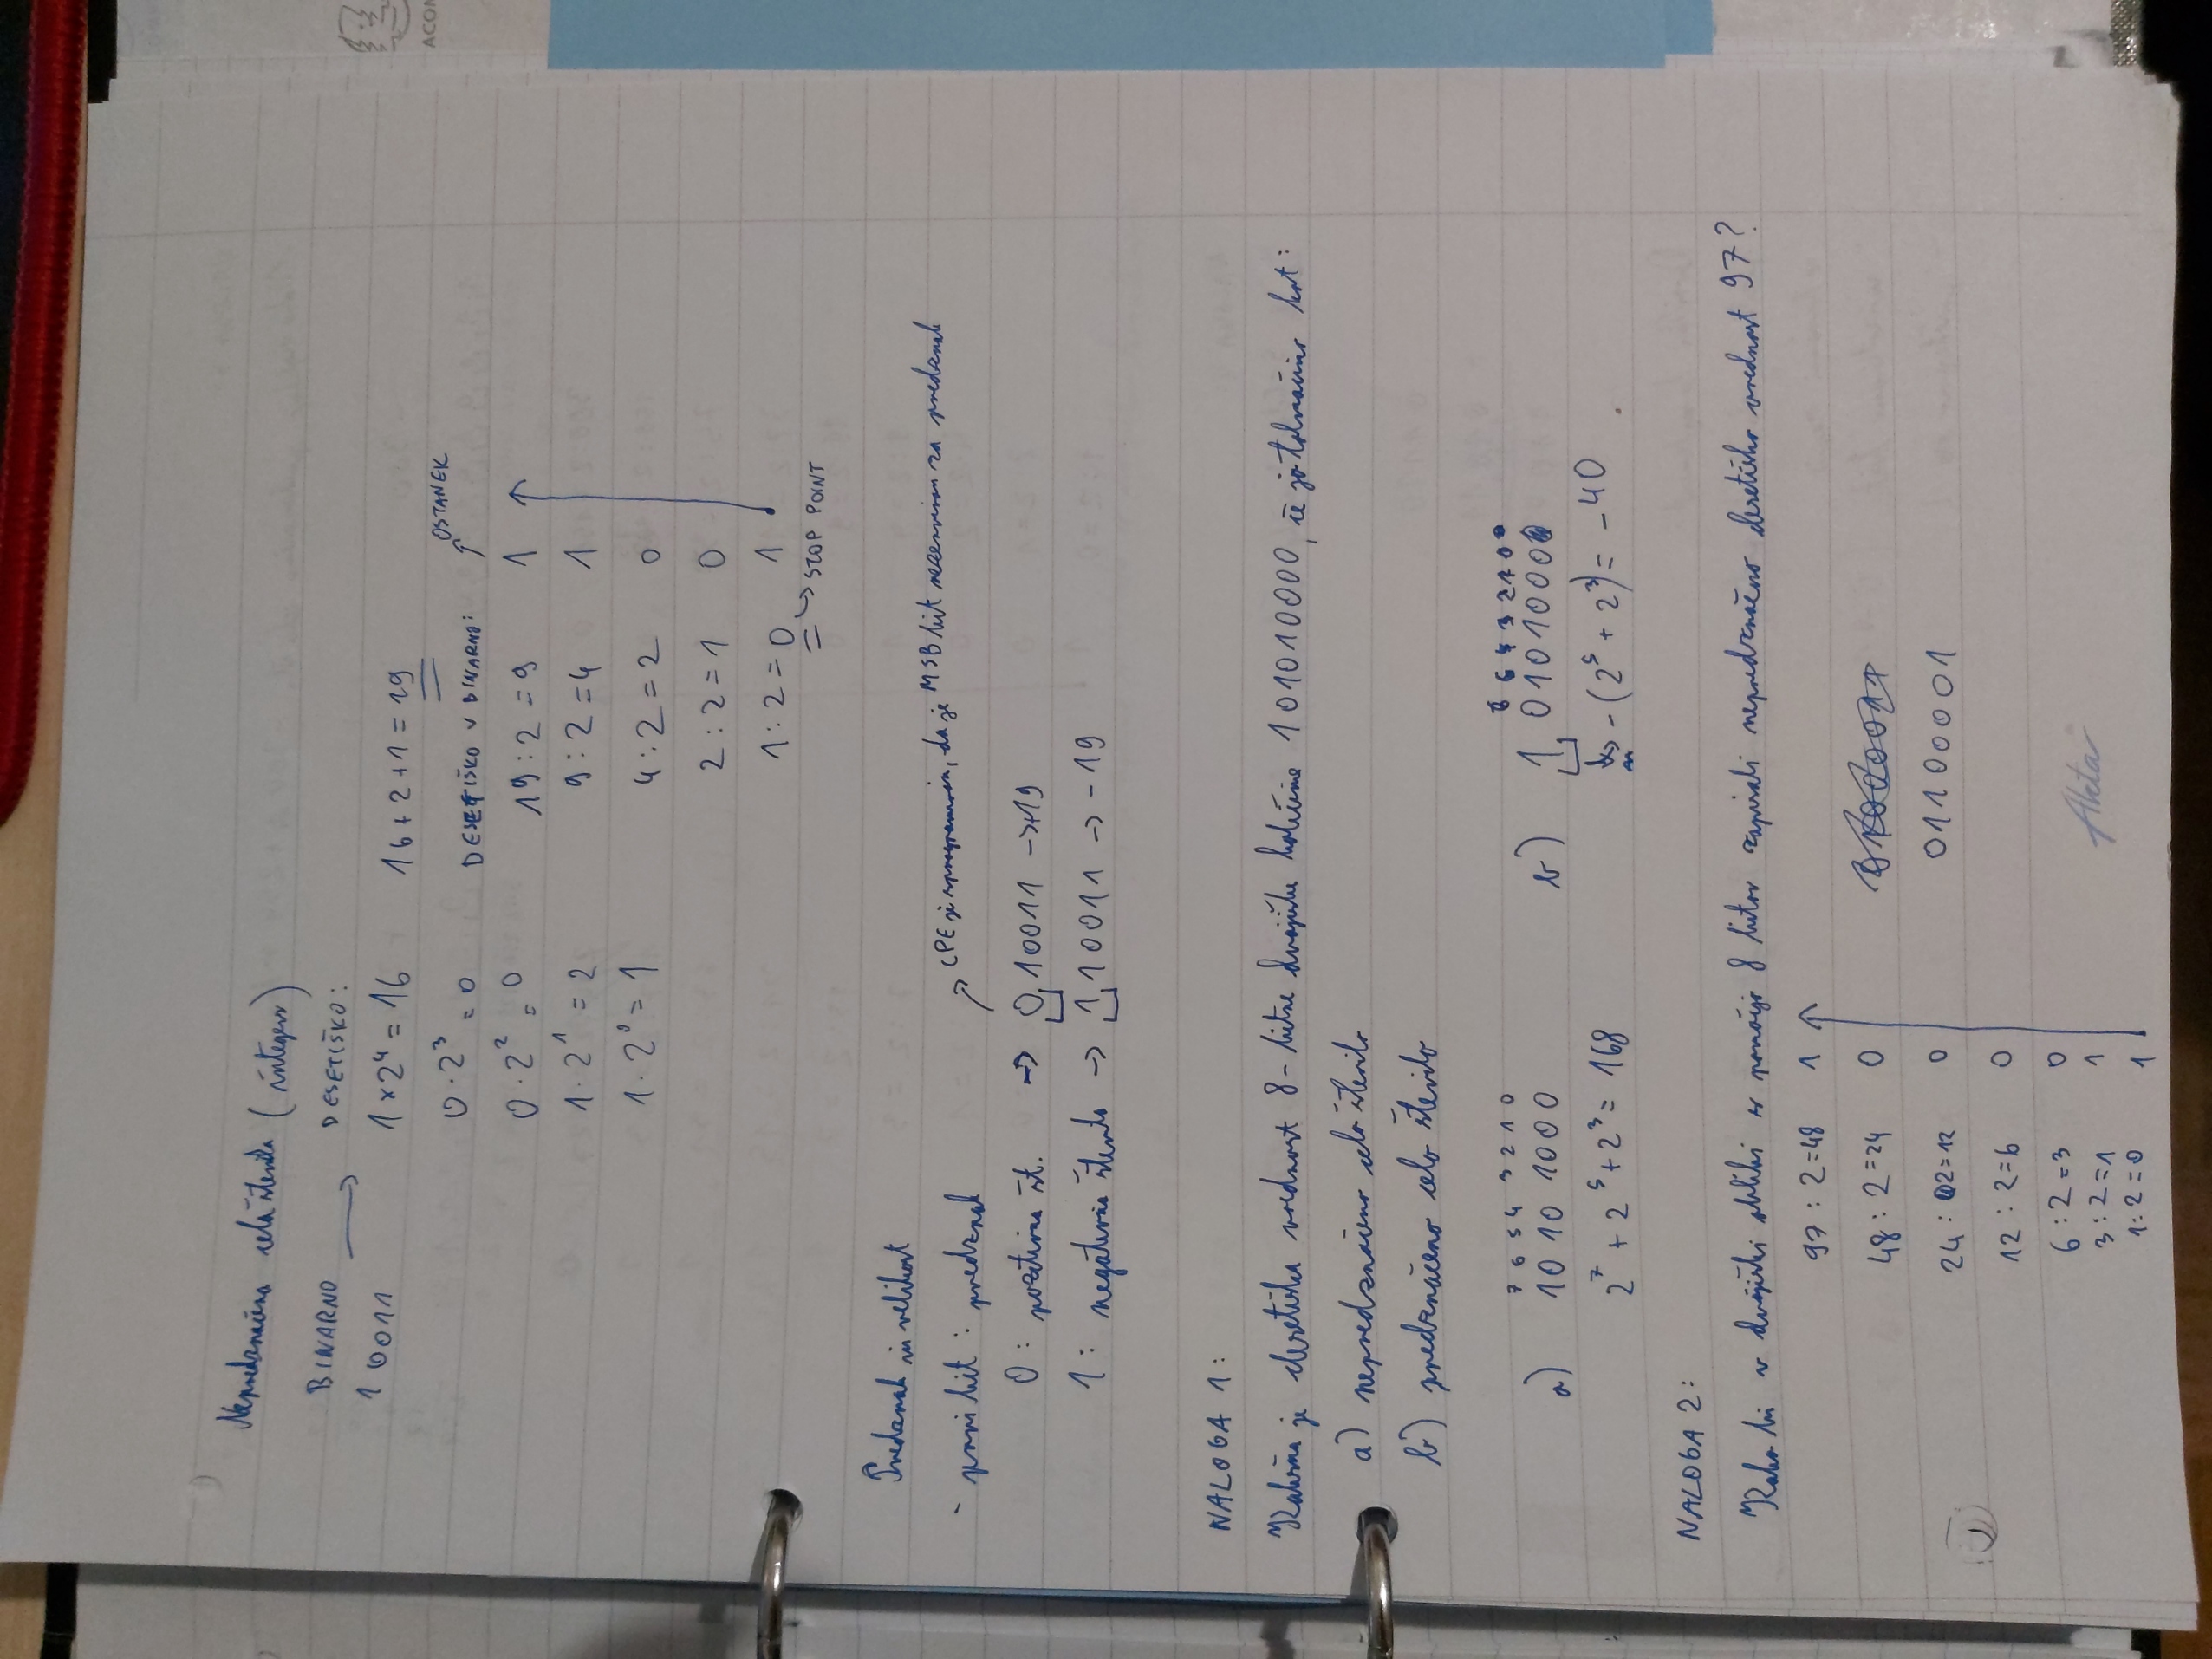 Nepredznačena cela števila (integers)
BINARNO → DESETIŠKO:
10011
1 × 2⁴ = 16
0 · 2³ = 0
0 · 2² = 0
1 · 2¹ = 2
1 · 2⁰ = 1
16 + 2 + 1 = 19
DESETIŠKO V BINARNO: OSTANEK
19 : 2 = 9 1
9 : 2 = 4 1
4 : 2 = 2 0
2 : 2 = 1 0
1 : 2 = 0 1
→ STOP POINT
Predznak in velikost
- prvi bit : predznak
→ CPE je sprogramiran, da je MSB bit rezerviran za predznak
0 : pozitivna št. → 0 10011 → +19
1 : negativna števila → 1 10011 → -19
NALOGA 1:
Kakšna je desetiška vrednost 8-bitne dvojiške količine 101010000, če jo tolmačimo kot:
a) nepredznačeno celo število
b) predznačeno celo število
7 6 5 4 3 2 1 0
a) 1010 1000
2⁷ + 2⁵ + 2³ = 168
b) 1 0101000
-(2⁵ + 2³) = -40
NALOGA 2:
Kako bi v dvojiški obliki s pomočjo 8 bitov zapisali nepredznačeno desetiško vrednost 97?
97 : 2 = 48 1
48 : 2 = 24 0
24 : 2 = 12 0
12 : 2 = 6 0
6 : 2 = 3 0
3 : 2 = 1 1
1 : 2 = 0 1
01100001
Akta
ACON